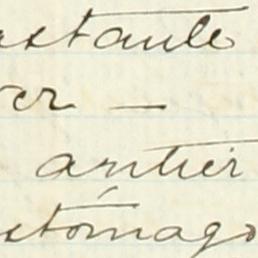 astante
er —
antier
stómago